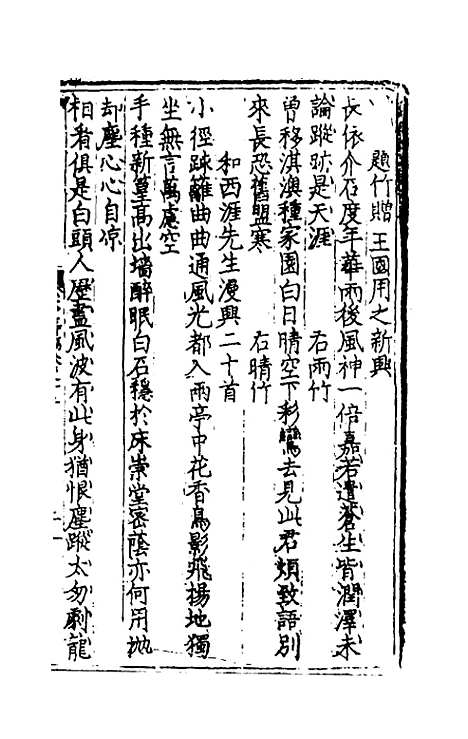 題竹贈王國用之新興
長依介石度年華雨後風神一倍嘉若遣蒼生皆潤澤未
論蹤跡是天涯　右雨竹
曾移淇澳種家園白日晴空下彩鸞去見此君煩致語別
來長恐舊盟寒　右晴竹
和西涯先生漫興二十首
小徑疎籬曲曲通風光都入兩亭中花香鳥影飛揚地獨
坐無言萬慮空
手種新篁高出墻醉眠白石穩於床崇堂密蔭亦何用拋
却塵心心自凉
相看俱是白頭人歷盡風波有此身猶恨塵蹤太匆剩龍